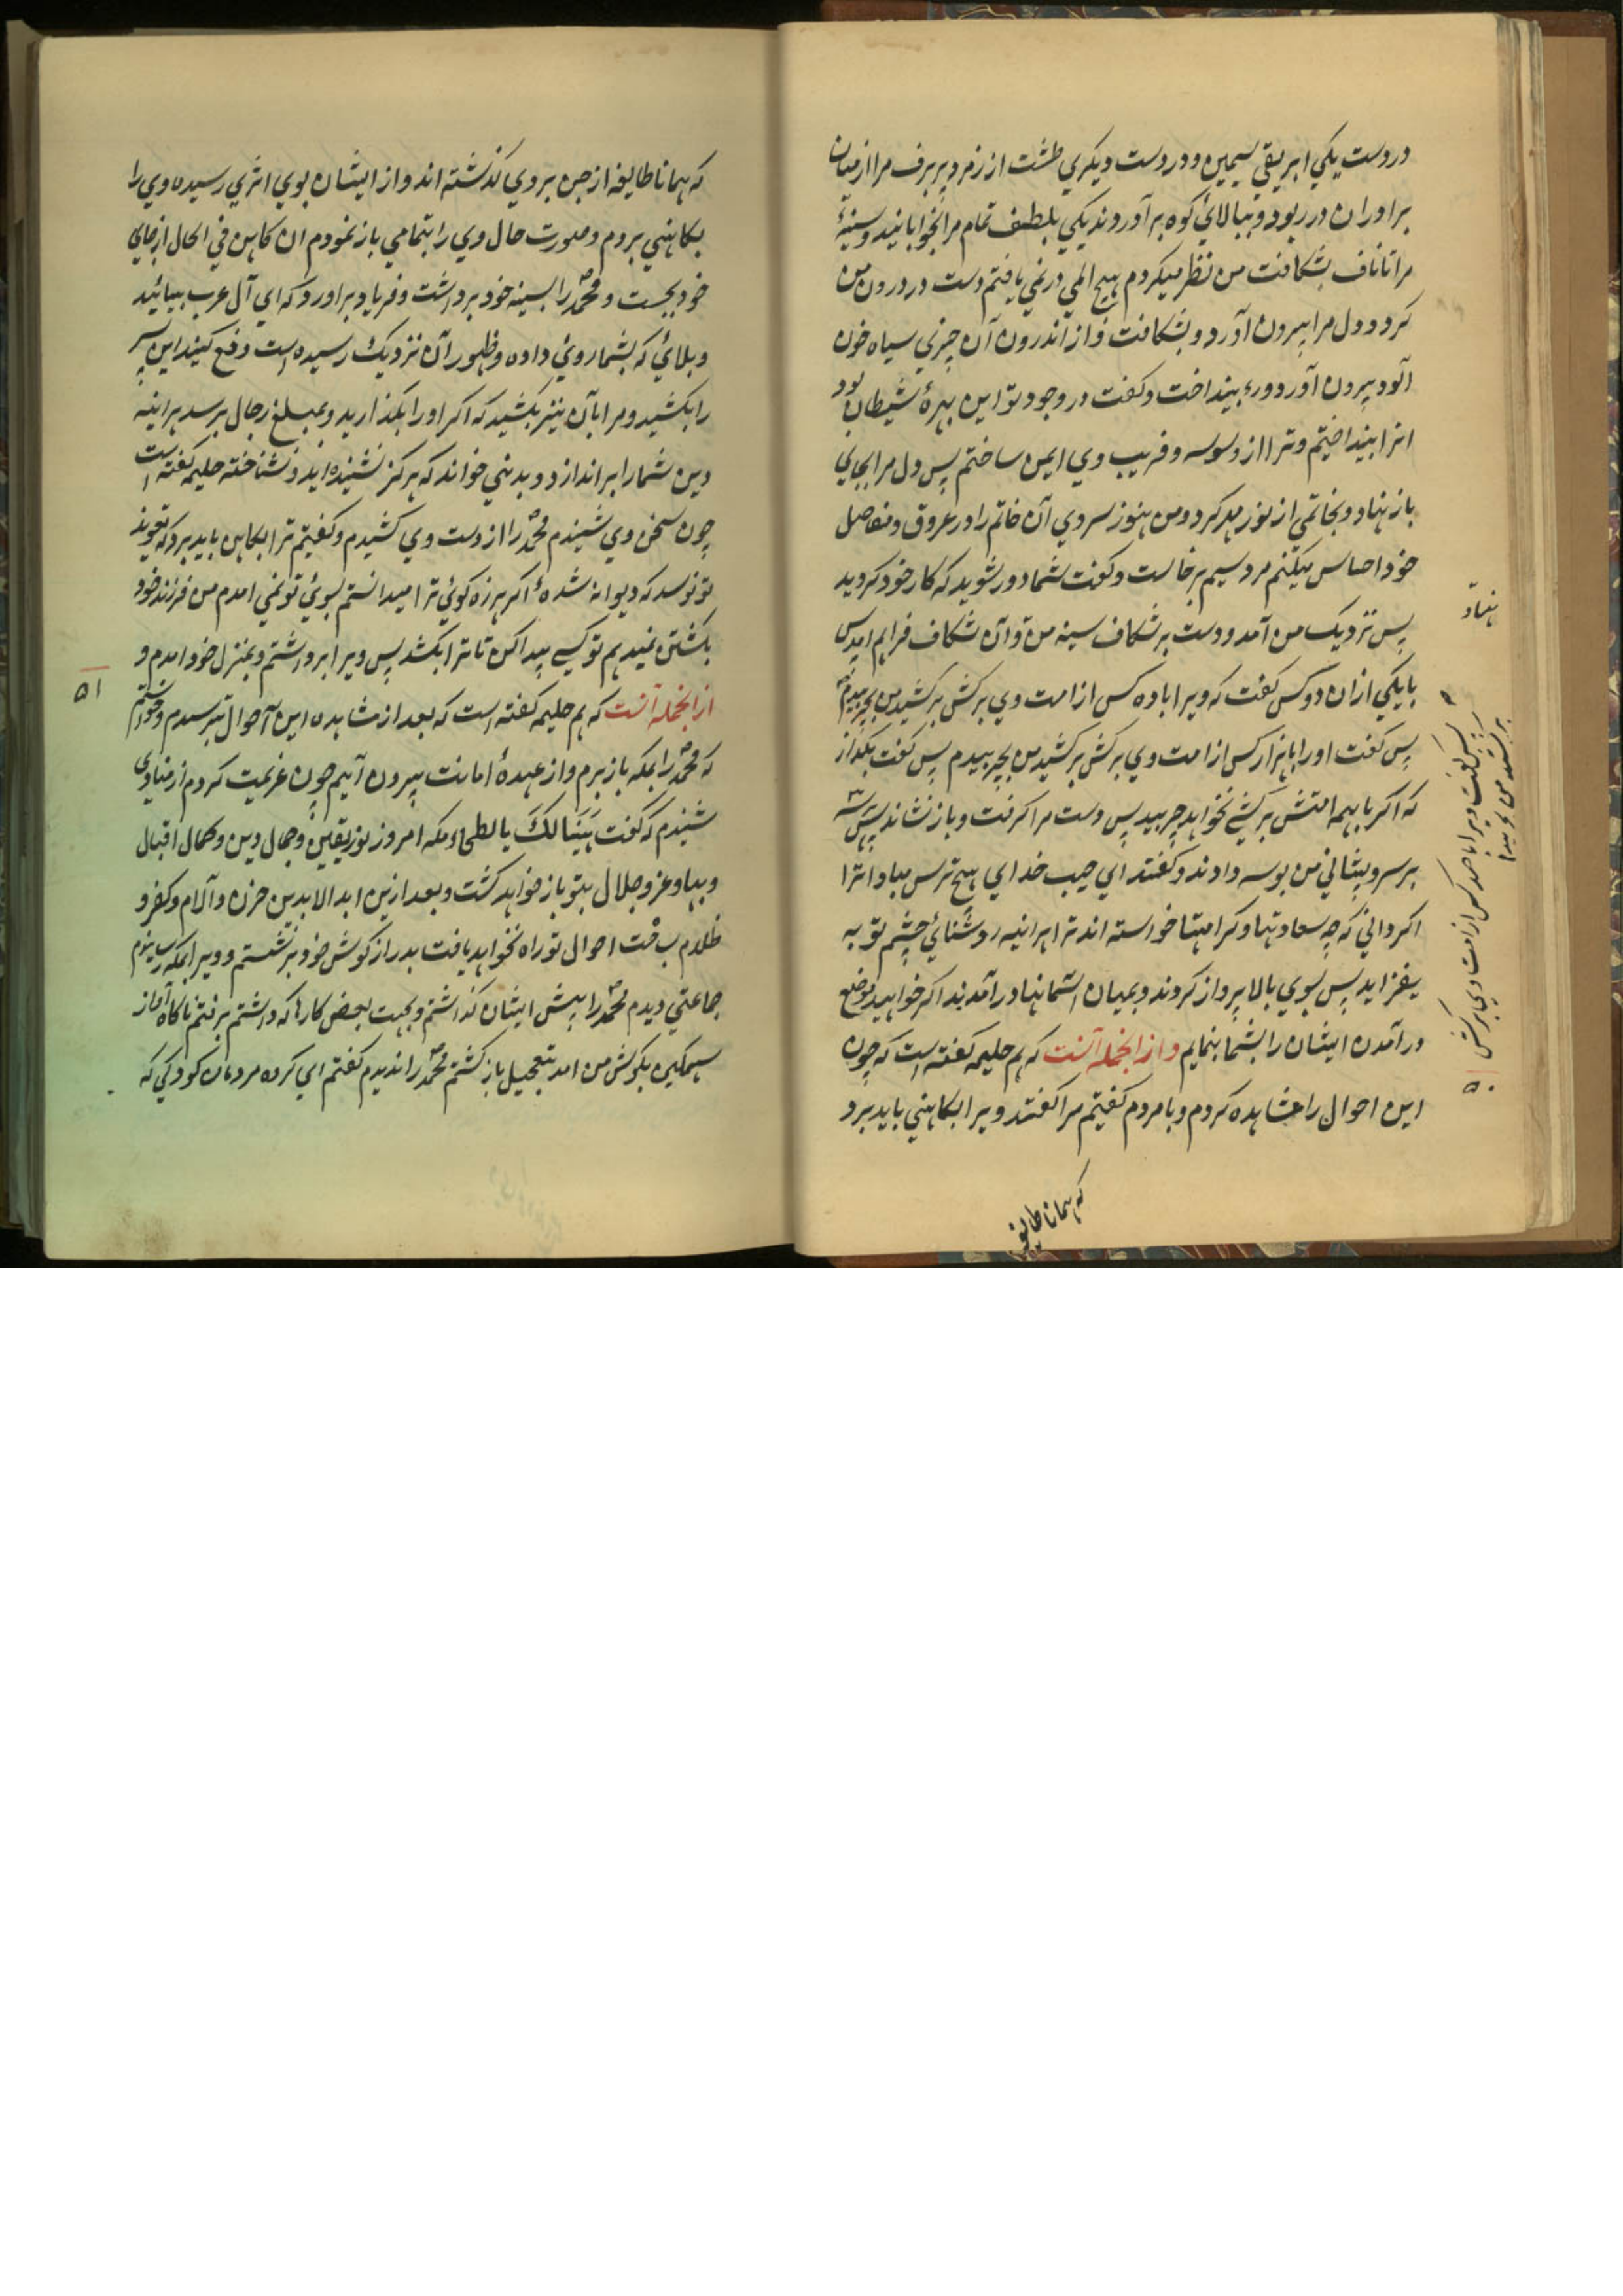 در دست یکي ابریقي سیمین و در دست دیکري طشت از زمرد پر برف مرا از میان
برادران در ربود و ببالائ کوه برآوردند یکي بلطف تمام مرا بخوابانید و سینهٔ
مرا تا ناف بشکافت من نظر میکردم هیچ المي در نمي یافتم دست در درون من
کرد و دل مرا بیرون آورد و بشکافت و از اندرون آن چیزي سیاه خون
آلود بیرون آورد و دور بینداخت و کفت در وجود تو این بهرهٔ شیطان بود
انرا بینداختیم و ترا از وسوسه و فریب وي ایمن ساختم پس دل مرا بجاي
باز نهاد و بخاتمي از نور مهر کرد و من هنوز سردي آن خاتم را در عروق و مفاصل
خود احساس میکنم مرد سیم برخاست و کفت شما دور شوید که کار خود کردید
پس نزدیک من آمد و دست بر شکاف سینه من نهاد و آن شکاف فراهم امد پس
با یکي ازان دو کس کفت که ویرا با ده کس از امت وي برکش برکشید من بچربیدم
پس کفت او را با هزار کس از امت وي برکش برکشید من بچربیدم پس کفت بکذار
که اکر با همه امتش برکشي نخواهد چربید پس دست مرا کرفت و باز نشاند پس هر سه
بر سر و پیشاني من بوسه دادند و کفتند اي حبیب خداي هیچ ترس مباد انرا
اکر داني که چه سعادتها و کرامتها خواسته اند ترا هر اینه روشنائي چشم تو به
یفزاید پس بوي بالا پرواز کردند و بمیان اسمانها در آمدند اکر خواهید موضع
در آمدن ایشان را بشما بنمایم و از انجمله آنست که هم حلیمه کفته است که چون
این احوال را مشاهده کردم و با مردم کفتیم مرا کفتند ویرا بکاهني باید برد
که همانا طایفه
نهاد
پس کفت ویرا با صد کس از امت وي برکش
برکشید من بچربیدم
۵۰
که همانا طایفه از جن بروي کذشته اند و از ایشان بوي اثري رسیده وي را
بکاهني بردم و صورت حال وي را بتمامي باز نمودم ان کاهن في الحال از جاي
خود بجست و محمد را بسینه خود برداشت و فریاد براورد که اي آل عرب بیائید
و بلائي که بشما روي داده و ظهور آن نزدیک رسیده است دفع کنید این پسر
را بکشید و مرا بآن نیز بکشید که اکر او را بکذارید و بمبلغ رجال برسد هر اینه
دین شما را براندازد و بدیني خواند که هرکز نشنیده اید و نشناخته حلیمه کفته است
چون سخن وي شنیدم محمد را از دست وي کشیدم و کفتیم ترا بکاهن باید برد که تعویذ
تو نوسد که دیوانه شدهٔ اکر هرزه کوئي ترا میدانستم بسوي تو نمي امدم من فرزند خود
بکشتن نمیدهم تو کسي پیدا کن تا ترا بکشد پس ویرا برداشتم و بمنزل خود امدم و
از انجمله آنست که هم حلیمه کفته است که بعد از مشاهده این احوال بترسیدم و خواستم
که محمد را بمکه باز برم و از عهدهٔ امانت بیرون آیم چون عزیمت کردم از منادي
شنیدم که کفت هنیئا لک یا بطحاء مکه امروز نور یقین و جمال دین و کمال اقبال
و بها و عز و جلال بتو باز خواهد کشت و بعد ازین ابد الابدین حزن و آلام و کفر و
ظلام بساحت احوال تو راه نخواهد یافت بدراز کوش خود برنشستم و ویرا بمکه رسانیدم
جماعتي دیدم محمد را پیش ایشان کذاشتم و بجهت بعض کارها که داشتم برفتم ناکاه آواز
سهمکین بکوش من امد بتعجیل باز کشتم محمد را ندیدم کفتم اي کروه مردمان کودکي که
۵۱